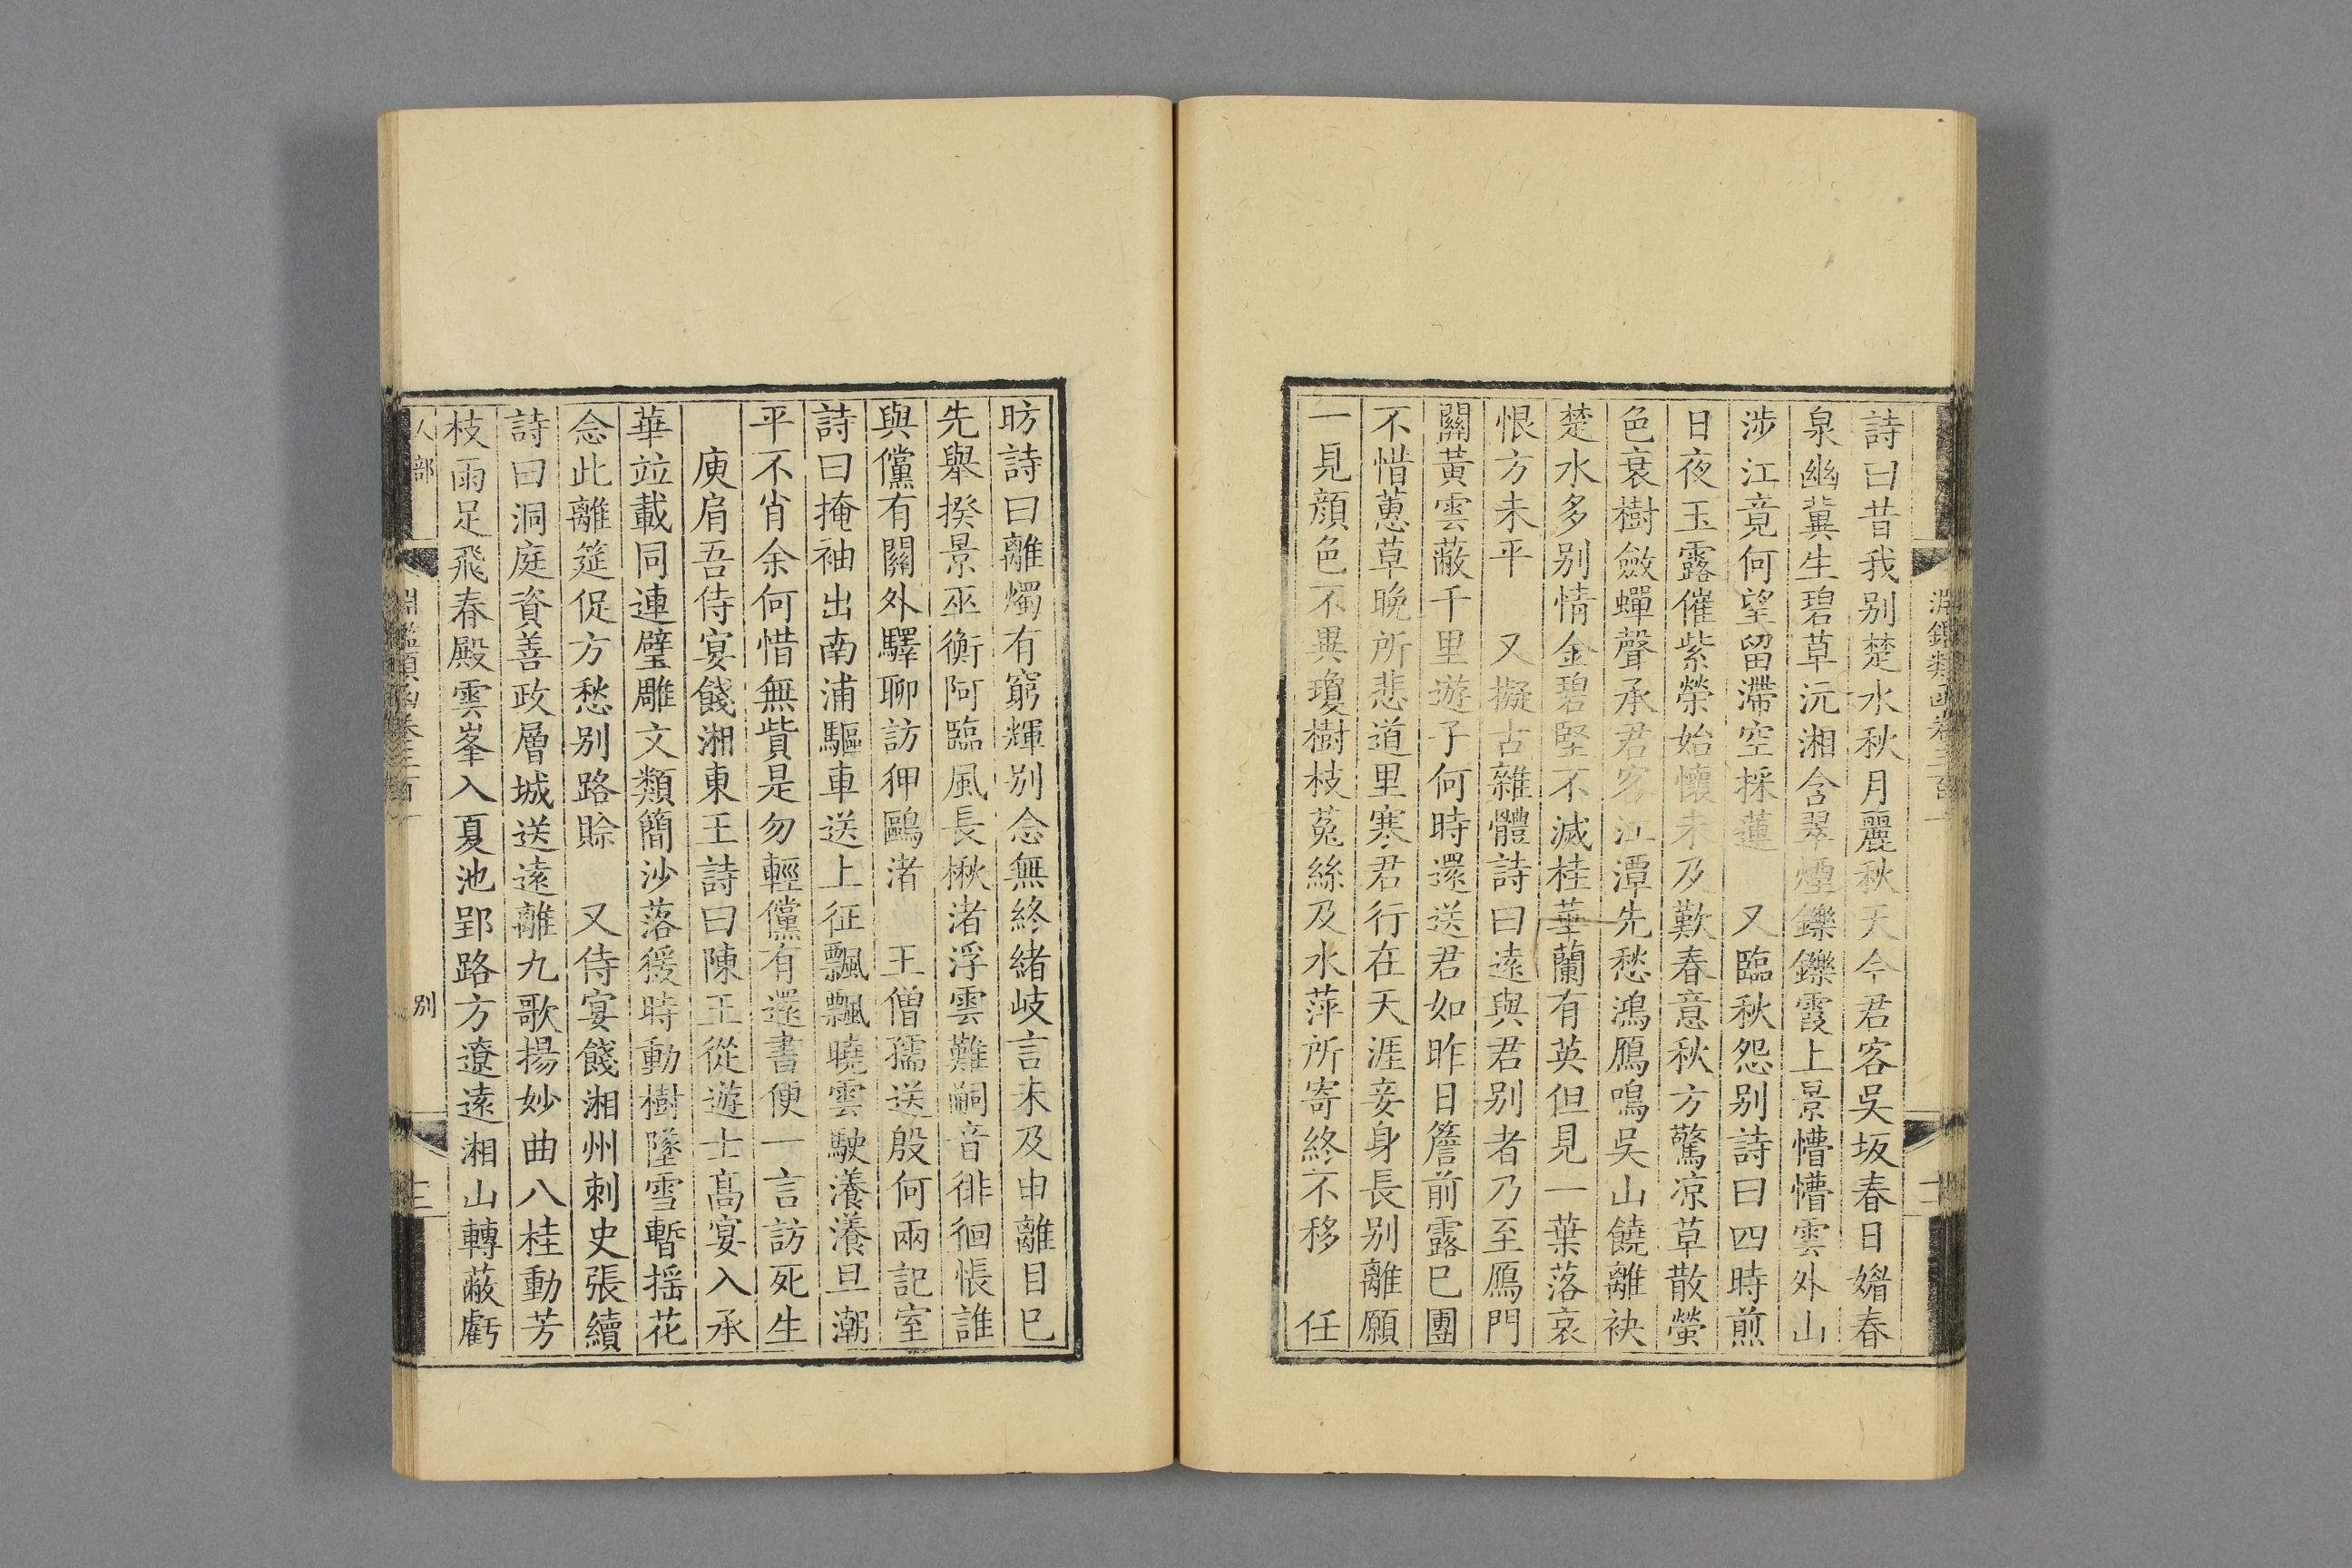 詩曰昔我别楚水秋月麗秋天今君客吳坂春日媚春
泉幽冀生碧草沅湘含翠煙鑠鑠霞上景懵懵雲外山
涉江竟何望留滯空採蓮　又臨秋怨别詩曰四時煎
日夜玉露催紫榮始懷未及歎春意秋方驚凉草散螢
色衰樹斂蟬聲承君客江潭先愁鴻鴈鳴吳山饒離袂
楚水多别情金碧堅不滅桂華蘭有英但見一葉落哀
恨方未平　又擬古雜體詩曰遠與君别者乃至鴈門
關黃雲蔽千里遊子何時還送君如昨日簷前露已團
不惜蕙草晚所悲道里寒君行在天涯妾身長别離願
一見顔色不異瓊樹枝菟絲及水萍所寄終不移　任
昉詩曰離燭有窮輝别念無終緒岐言未及申離目已
先舉揆景巫衡阿臨風長楸渚浮雲難嗣音徘徊悵誰
與儻有關外驛聊訪狎鷗渚　王僧孺送殷何兩記室
詩曰掩袖出南浦驅車送上征飄飄曉雲駛瀁瀁旦潮
平不肯余何惜無貲是勿輕儻有還書便一言訪死生
庾肩吾侍宴餞湘東王詩曰陳王從遊士髙宴入承
華竝載同連璧雕文類簡沙落猨時動樹墜雪暫揺花
念此離筵促方愁别路賒　又侍宴餞湘州刺史張續
詩曰洞庭資善政層城送遠離九歌揚妙曲八桂動芳
枝雨足飛春殿雲峯入夏池郢路方遼遠湘山轉蔽虧
人部
别
三